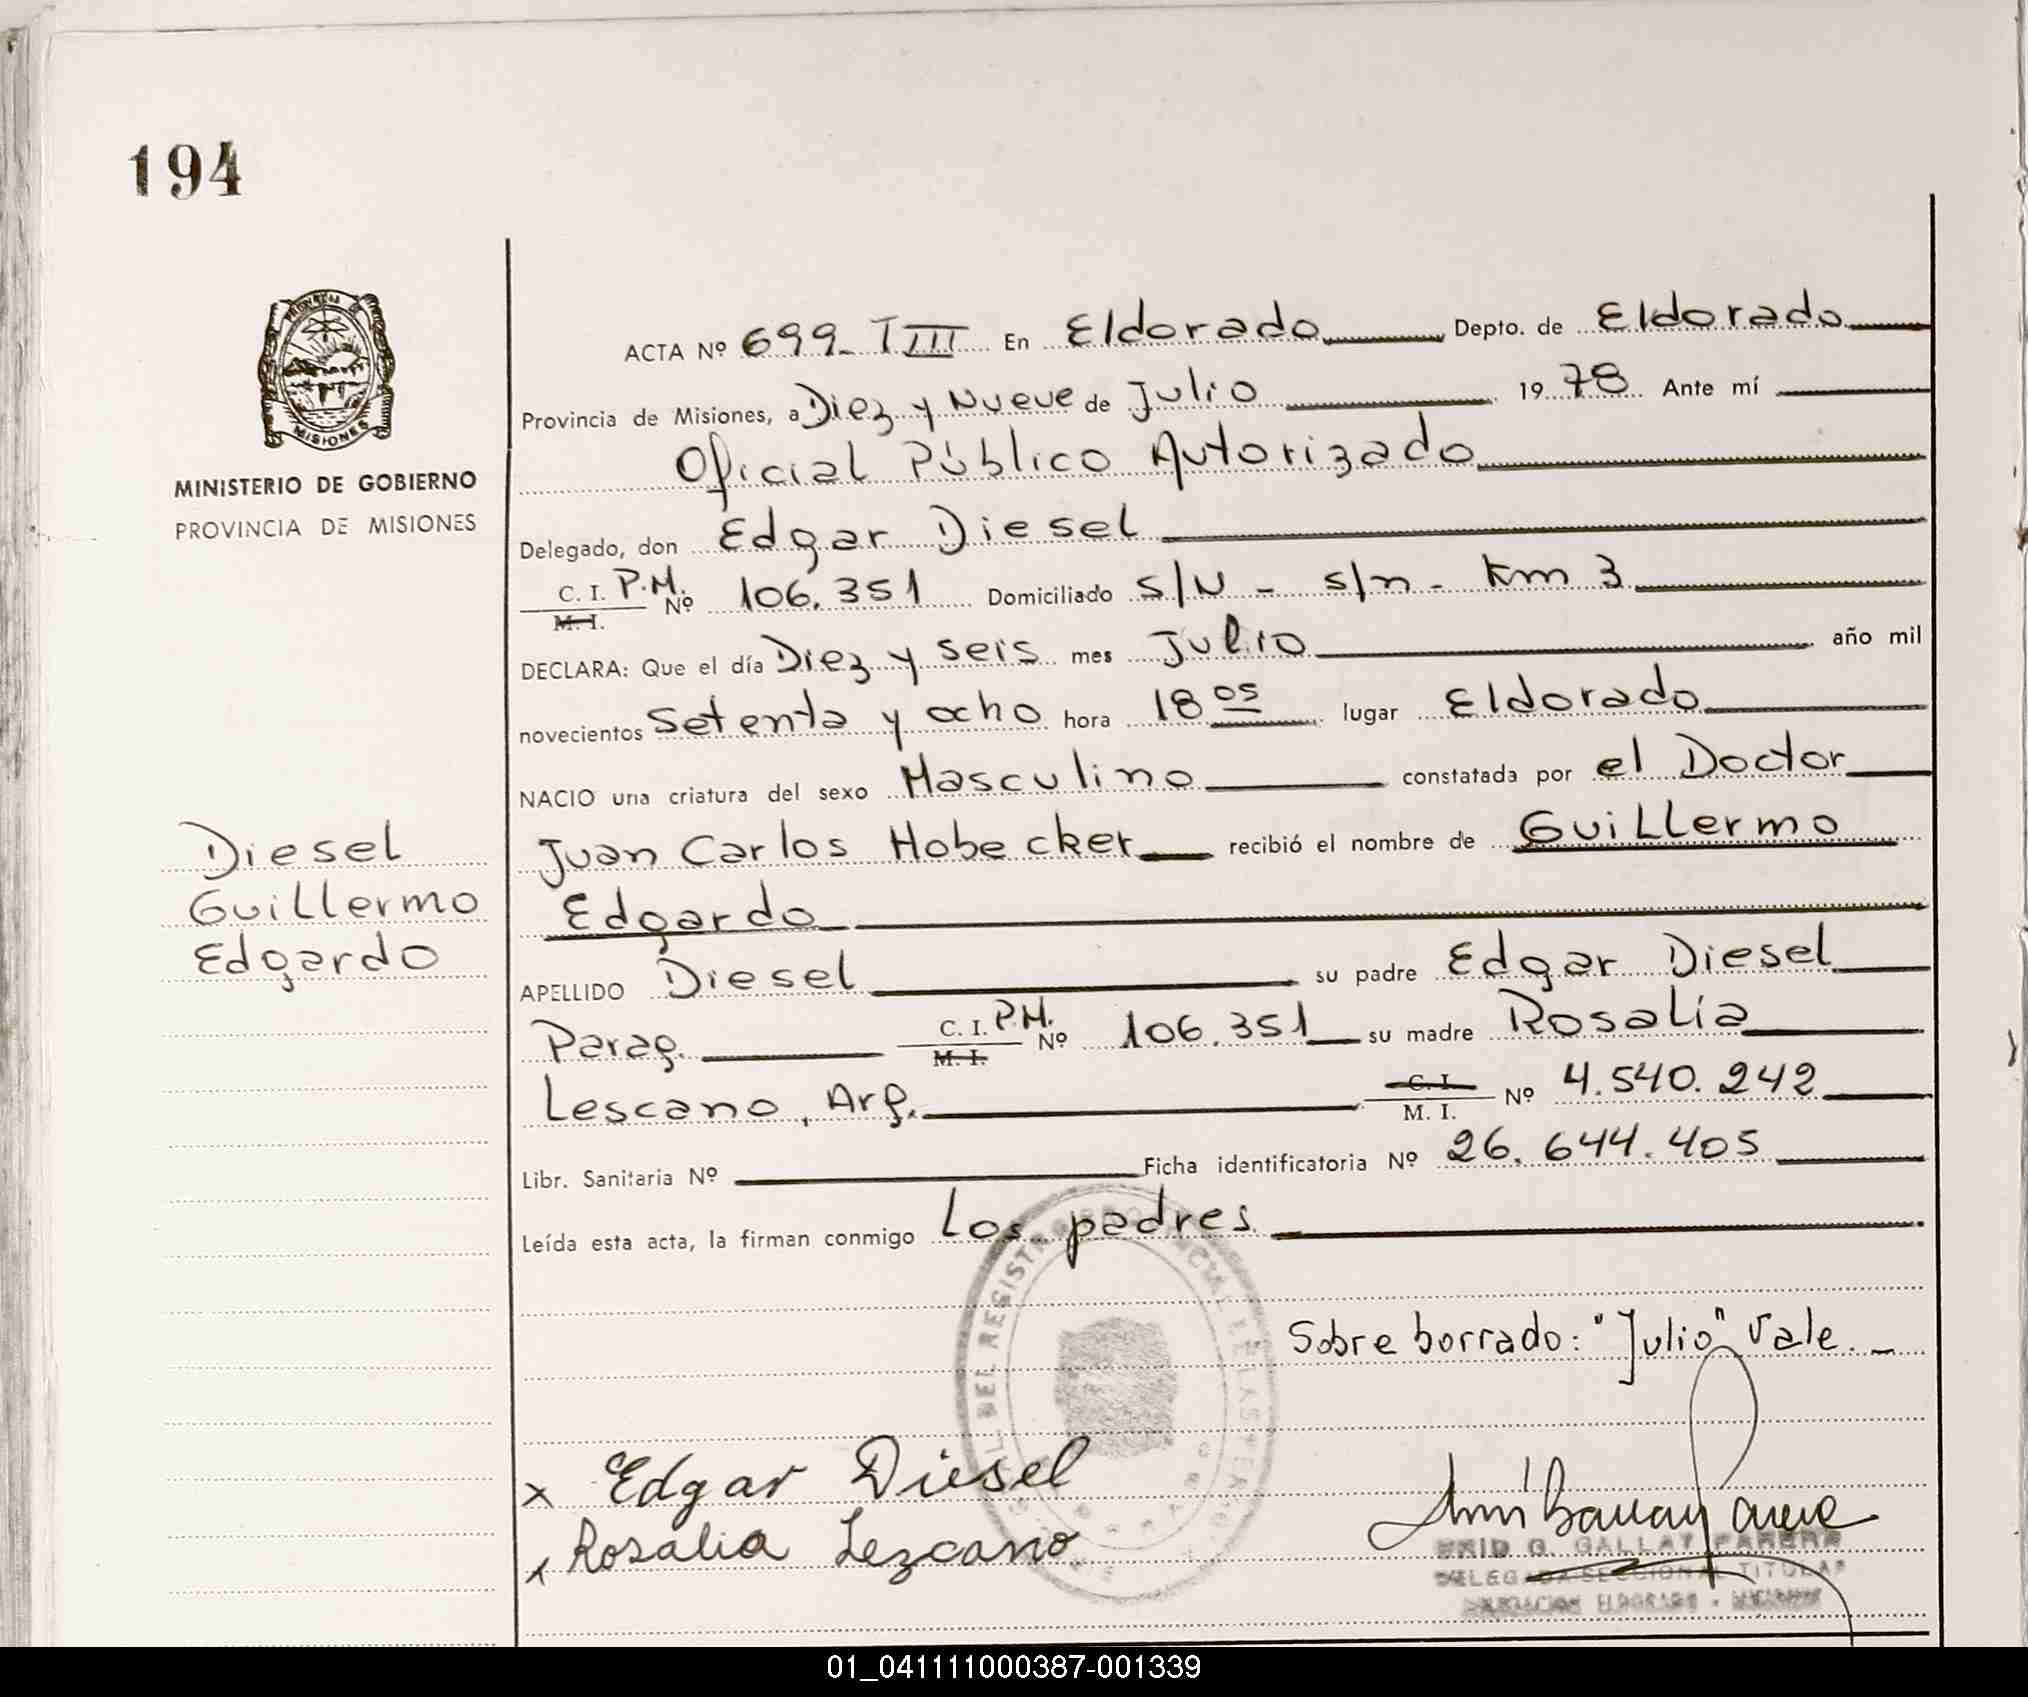 194
MISIONES
MINISTERIO DE GOBIERNO
PROVINCIA DE MISIONES
Diesel
Guillermo
Edgardo
ACTA Nº 699_ TIII En Eldorado Depto. de Eldorado
Provincia de Misiones, a Diez y Nueve de Julio 19 78 Ante mí
Oficial Público Autorizado
Delegado, don Edgar Diesel
C. I. P.M. Nº 106.351 Domiciliado S/N - s/n - Km 3
M. I.
DECLARA: Que el día Diez y seis mes Julio año mil
novecientos Setenta y ocho hora 18 05 lugar Eldorado
NACIO una criatura del sexo Masculino constatada por el Doctor
Juan Carlos Hobecker recibió el nombre de Guillermo
Edgardo
APELLIDO Diesel su padre Edgar Diesel
Parag. C. I. P.M. Nº 106.351 su madre Rosalía
M. I.
Lescano, Arg. C. I. Nº 4.540.242
M. I.
Libr. Sanitaria Nº Ficha identificatoria Nº 26.644.405
Leída esta acta, la firman conmigo Los padres
Sobre borrado: "Julio" Vale._
x Edgar Diesel
x Rosalia Lezcano
G. GALLAY
TITULAR
ELDORADO
01_041111000387-001339